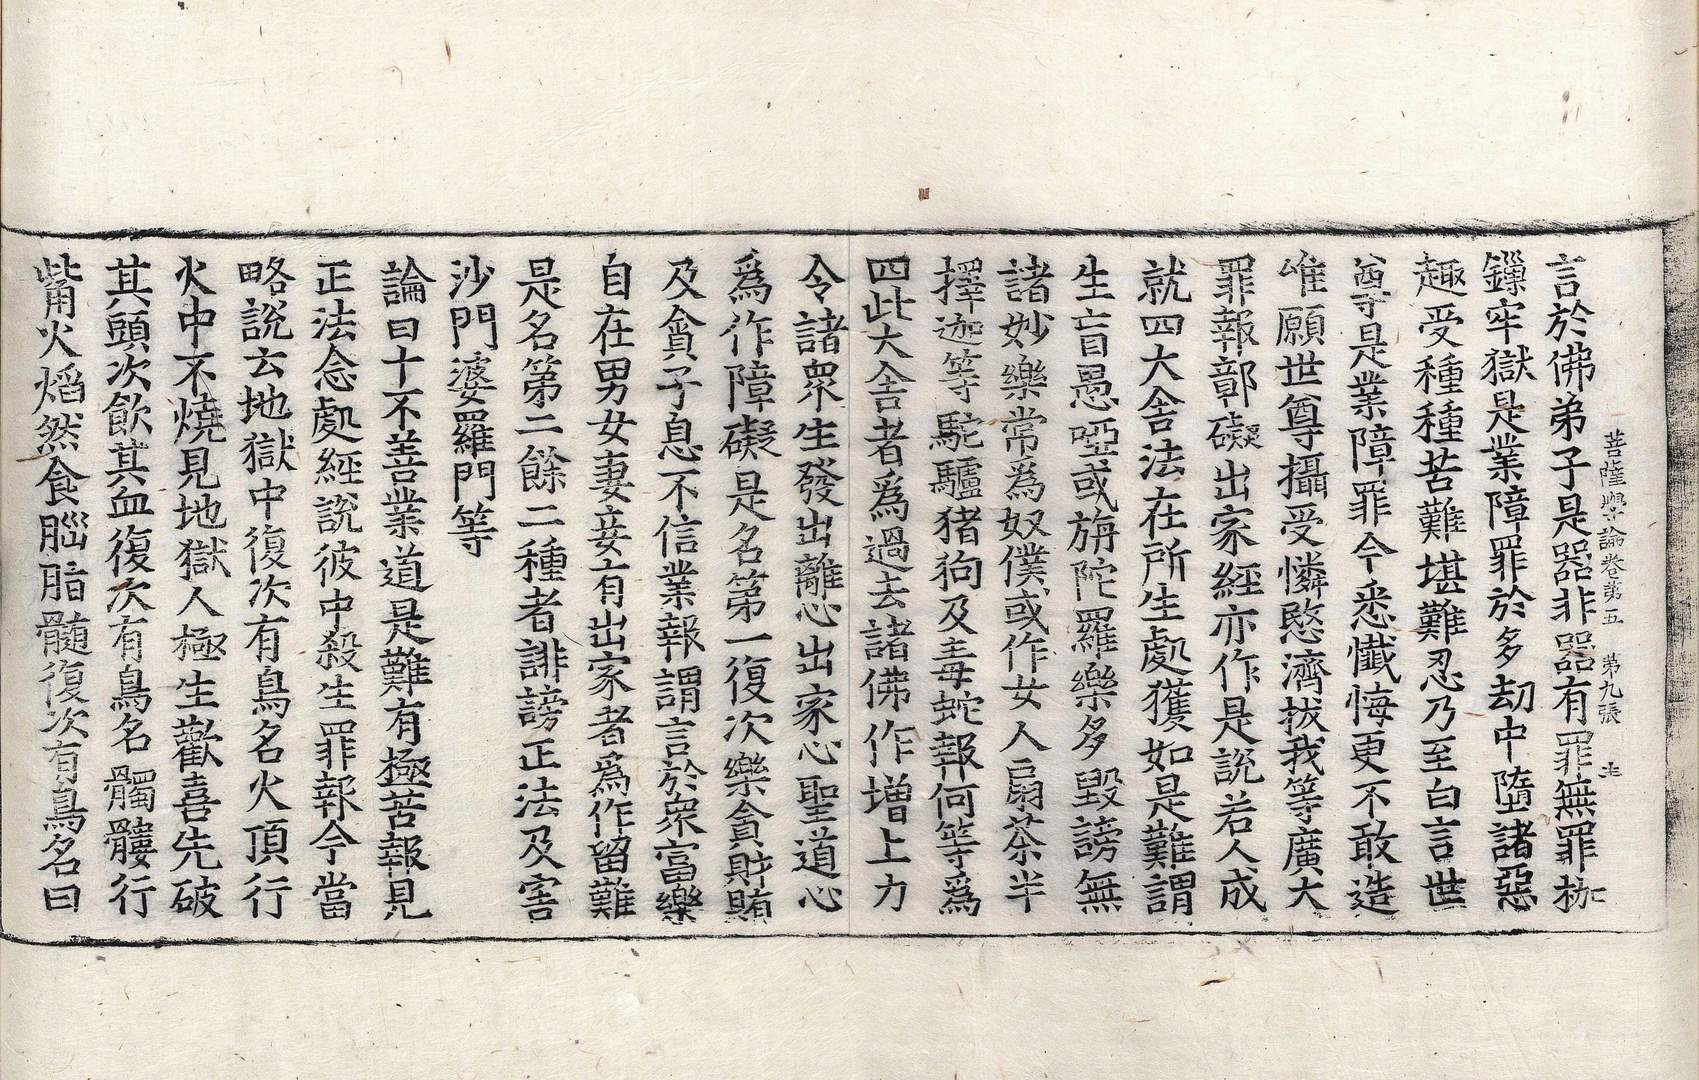 菩薩學論卷第五 第九張
言於佛弟子是器非器有罪無罪枷
鏁牢獄是業障罪於多刧中墮諸惡
趣受種種苦難堪難忍乃至白言世
尊是業障罪今悉懺悔更不敢造
唯願世尊攝受憐愍濟拔我等廣大
罪報鄣礙出家經亦作是說若人成
就四大舍法在所生處獲如是難謂
生盲愚啞或旃陀羅樂多毀謗無
諸妙樂常爲奴僕或作女人扇茶半
擇迦等駝驢猪狗及毒蛇報何等爲
四此大舍者爲過去諸佛作增上力
令諸衆生發出離心出家心聖道心
爲作障礙是名第一復次樂貪財賄
及貪子息不信業報謂言於衆富樂
自在男女妻妾有出家者爲作留難
是名第二餘二種者誹謗正法及害
沙門婆羅門等
論曰十不善業道是難有極苦報見
正法念處經說彼中殺生罪報今當
略說云地獄中復次有鳥名火頂行
火中不燒見地獄人極生歡喜先破
其頭次飲其血復次有鳥名髑髏行
觜火焰然食腦脂髓復次有鳥名曰